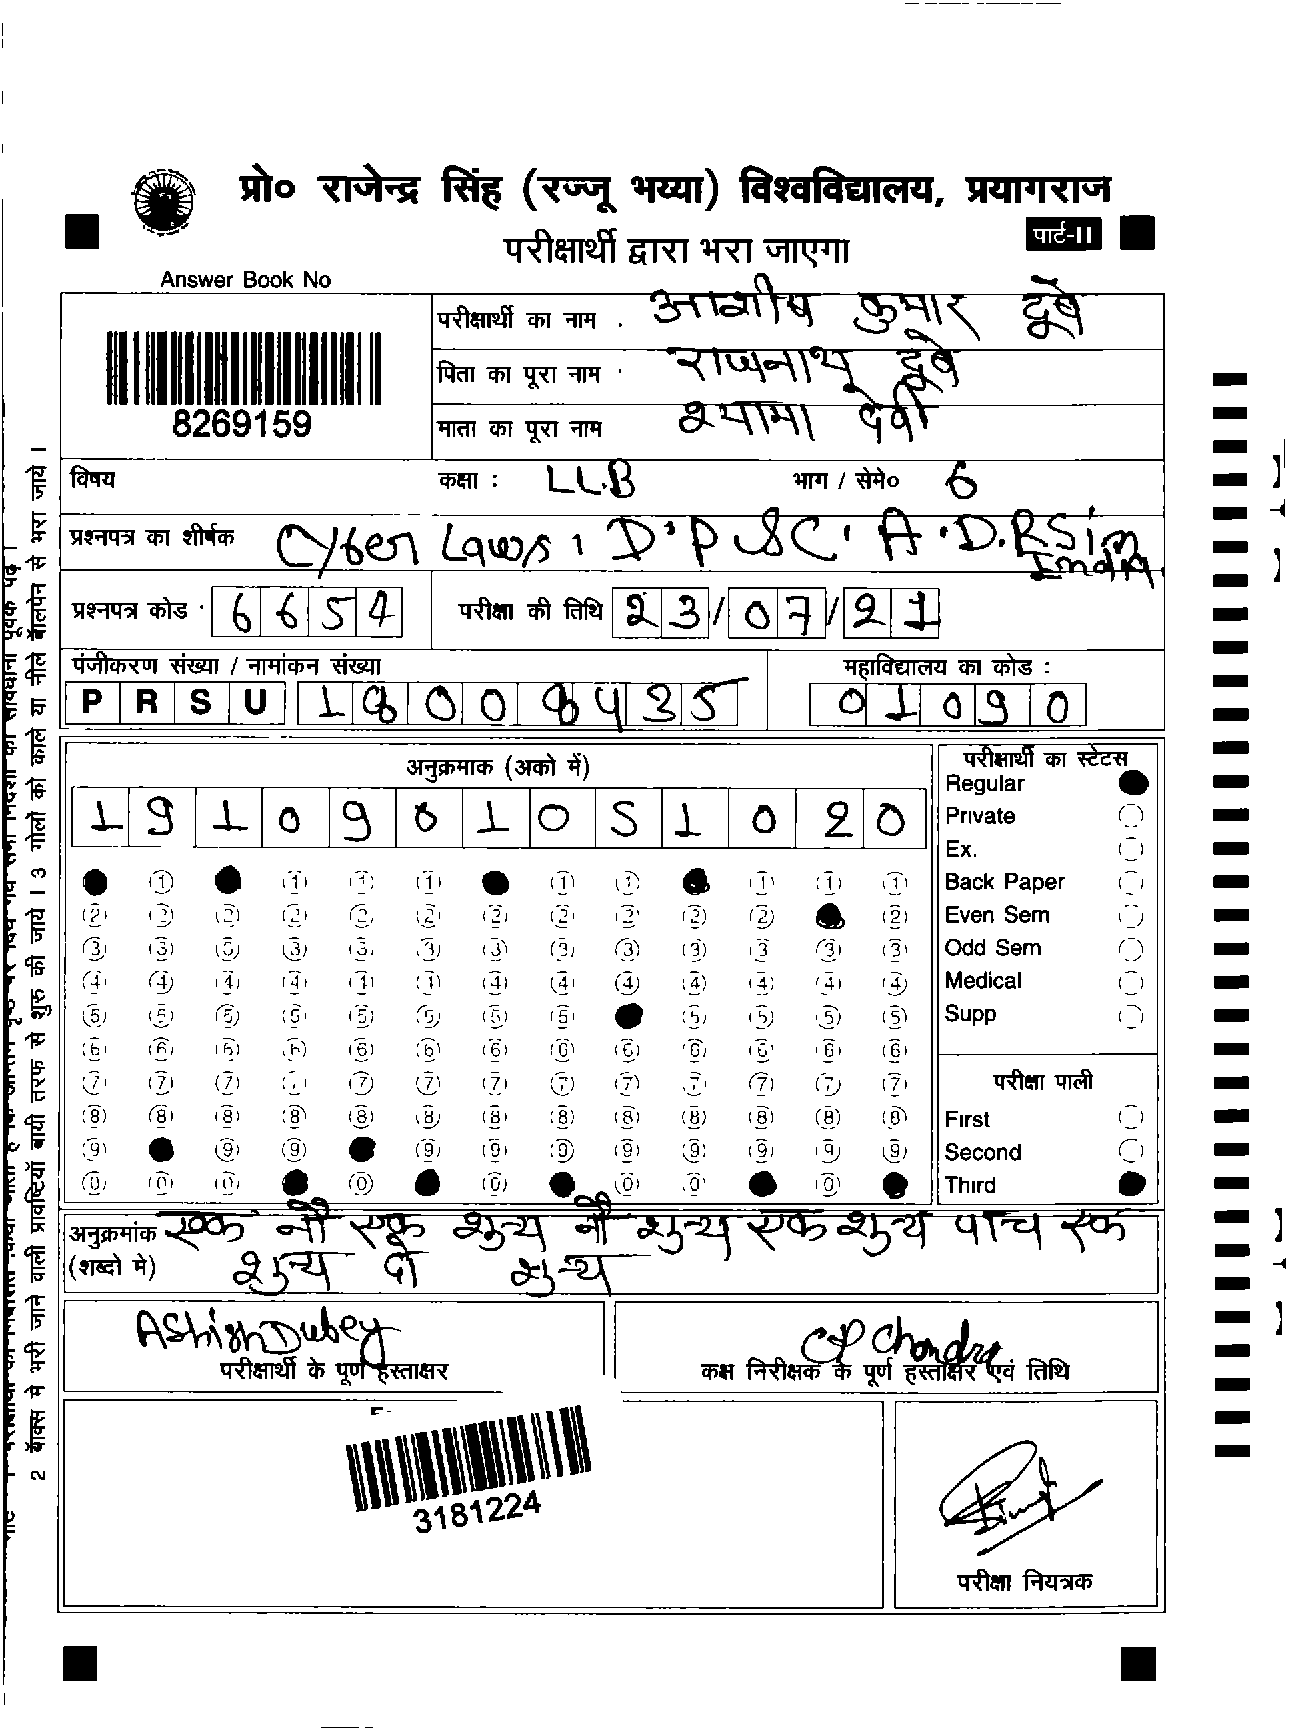 प्रो० राजेन्द्र सिंह (रज्जू भय्या) विश्वविद्यालय, प्रयागराज
पार्ट-II
परीक्षार्थी द्वारा भरा जाएगा
Answer Book No
8269159
परीक्षार्थी का नाम . आशीष कुमार दूबे
पिता का पूरा नाम राजनाथ दूबे
माता का पूरा नाम श्यामा देवी
विषय कक्षा : LL.B भाग / सेमे० 6
प्रश्नपत्र का शीर्षक Cyber Laws, D.P.SC. A.D.RSim
India
प्रश्नपत्र कोड 6654 परीक्षा की तिथि 23/07/21
पंजीकरण संख्या / नामांकन संख्या महाविद्यालय का कोड :
PRSU 18008435 01090
अनुक्रमाक (अको में)
1910901051020
परीक्षार्थी का स्टेटस
Regular
Private
Ex.
Back Paper
Even Sem
Odd Sem
Medical
Supp
परीक्षा पाली
First
Second
Third
अनुक्रमांक एक नौ एक शुन्य नौ शुन्य एक शुन्य पांच एक
(शब्दो मे) शुन्य दो शुन्य
Ashish Dubey CP Chandra
परीक्षार्थी के पूर्ण हस्ताक्षर कक्ष निरीक्षक के पूर्ण हस्ताक्षर एवं तिथि
3181224
परीक्षा नियत्रक
2 बाक्स मे भरी जाने वाली प्रवष्टियॉ बायी तरफ से शुरु की जाये। 3 गोलो को काले या नीले बॉलपेन से भरा जाये।